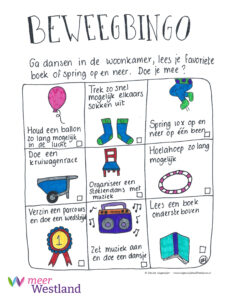 BEWEEGBINGO
Ga dansen in de woonkamer, lees je favoriete
boek of spring op en neer. Doe je mee?
Houd een ballon
zo lang mogelijk
in de lucht
Trek zo snel
mogelijk elkaars
sokken uit
Spring 10x op en
neer op één been
Doe een
kruiwagenrace
Organiseer een
stoelendans met
muziek
Hoelahoep zo lang
mogelijk
Verzin een parcours
en doe een wedstrijd
1
Zet muziek aan
en doe een dansje
Lees een boek
ondersteboven
meer
Westland